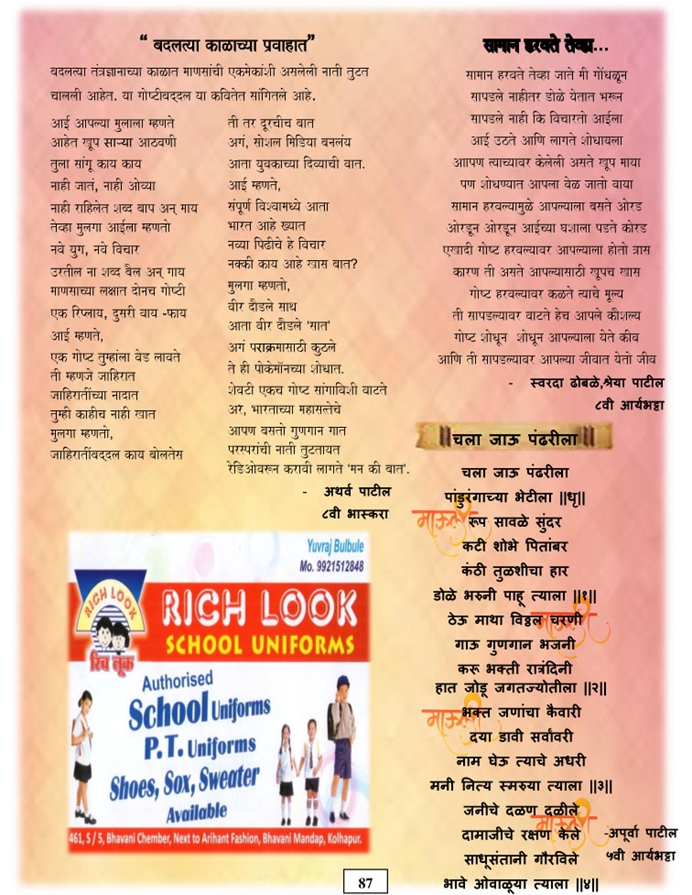 “ बदलत्या काळाच्या प्रवाहात”
बदलत्या तंत्रज्ञानाच्या काळात माणसांची एकमेकांशी असलेली नाती तुटत
चालली आहेत. या गोष्टीवद्दल या कवितेत सांगितले आहे.
आई आपल्या मुलाला म्हणते
आहेत खूप साऱ्या आठवणी
तुला सांगू काय काय
नाही जातं, नाही ओव्या
नाही राहिलेत शब्द बाप अन् माय
तेव्हा मुलगा आईला म्हणतो
नवे युग, नवे विचार
उरतील ना शब्द बैल अन् गाय
माणसाच्या लक्षात दोनच गोष्टी
एक रिप्लाय, दुसरी वाय -फाय
आई म्हणते,
एक गोष्ट तुम्हांला वेड लावते
ती म्हणजे जाहिरात
जाहिरातींच्या नादात
तुम्ही काहीच नाही खात
मुलगा म्हणतो,
जाहिरातींवद्दल काय बोलतेस
ती तर दूरचीच वात
अगं, सोशल मिडिया बनलंय
आता युवकाच्या दिव्याची वात.
आई म्हणते,
संपूर्ण विश्वामध्ये आता
भारत आहे ख्यात
नव्या पिढीचे हे विचार
नक्की काय आहे खास वात?
मुलगा म्हणतो,
वीर दौडले साथ
आता वीर दौडले ‘सात’
अगं पराक्रमासाठी कुठले
ते ही पोकेमॉनच्या शोधात.
शेवटी एकच गोष्ट सांगाविशी वाटते
अरे, भारताच्या महासत्तेचे
आपण बसतो गुणगान गात
परस्परांची नाती तुटतायत
रेडिओवरून करावी लागते ‘मन की वात’.
- अथर्व पाटील
८वी भास्करा
सामान हरवते तेव्हा...
सामान हरवते तेव्हा जाते मी गोंधळून
सापडले नाहीतर डोळे येतात भरून
सापडले नाही कि विचारतो आईला
आई उठते आणि लागते शोधायला
आापण त्याच्यावर केलेली असते खूप माया
पण शोधण्यात आपला वेळ जातो वाया
सामान हरवल्यामुळे आपल्याला बसते ओरड
ओरडून ओरडून आईच्या घशाला पडते कोरड
एखादी गोष्ट हरवल्यावर आपल्याला होतो त्रास
कारण ती असते आपल्यासाठी खूपच खास
गोष्ट हरवल्यावर कळते त्याचे मूल्य
ती सापडल्यावर वाटते हेच आपले कौशल्य
गोष्ट शोधून शोधून आपल्याला येते कीव
आणि ती सापडल्यावर आपल्या जीवात येतो जीव
- स्वरदा ढोबळे,श्रेया पाटील
८वी आर्यभट्टा
चला जाऊ पंढरीला
चला जाऊ पंढरीला
पांडुरंगाच्या भेटीला ||धृ||
रूप सावळे सुंदर
कटी शोभे पितांबर
कंठी तुळशीचा हार
डोळे भरुनी पाहू त्याला ||१||
ठेऊ माथा विठ्ठल चरणी
गाऊ गुणगान भजनी
करू भक्ती रात्रंदिनी
हात जोडू जगतज्योतीला ||२||
भक्त जणांचा कैवारी
दया डावी सर्वांवरी
नाम घेऊ त्याचे अधरी
मनी नित्य स्मरुया त्याला ||३||
जनीचे दळण दळीले
दामाजीचे रक्षण केले
साधूसंतानी गौरविले
भावे ओवाळूया त्याला ||४||
-अपूर्वा पाटील
५वी आर्यभट्टा
माऊली
माऊली
माऊली
माऊली
Yuvraj Bulbule
Mo. 9921512848
RICH LOOK
रिच लूक
RICH LOOK
SCHOOL UNIFORMS
Authorised
School Uniforms
P.T. Uniforms
Shoes, Sox, Sweater
Available
461, S / 5, Bhavani Chember, Next to Arihant Fashion, Bhavani Mandap, Kolhapur.
87